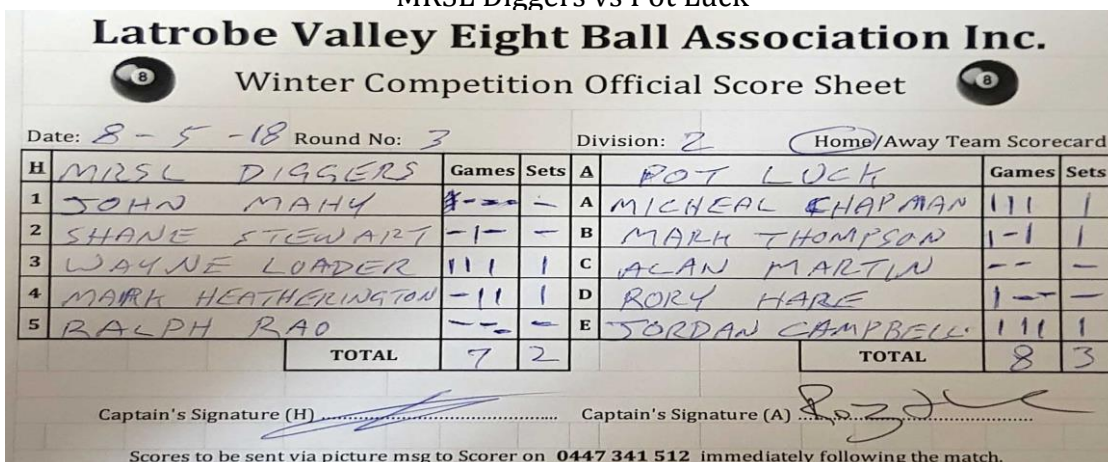 MRSL Diggers vs Pot Luck
Latrobe Valley Eight Ball Association Inc.
8 Winter Competition Official Score Sheet 8
Date: 8 - 5 - 18 Round No: 3 Division: 2 Home/Away Team Scorecard
H MRSL DIGGERS Games Sets A POT LUCK Games Sets
1 JOHN MAHY - - - - A MICHEAL CHAPMAN 111 1
2 SHANE STEWART -1- - B MARK THOMPSON 1-1 1
3 WAYNE LOADER 111 1 C ALAN MARTIN -- -
4 MARK HEATHERINGTON -11 1 D RORY HARE 1-- -
5 RALPH RAO --- - E JORDAN CAMPBELL. 111 1
TOTAL 7 2 TOTAL 8 3
Captain's Signature (H) Captain's Signature (A)
Scores to be sent via picture msg to Scorer on 0447 341 512 immediately following the match.